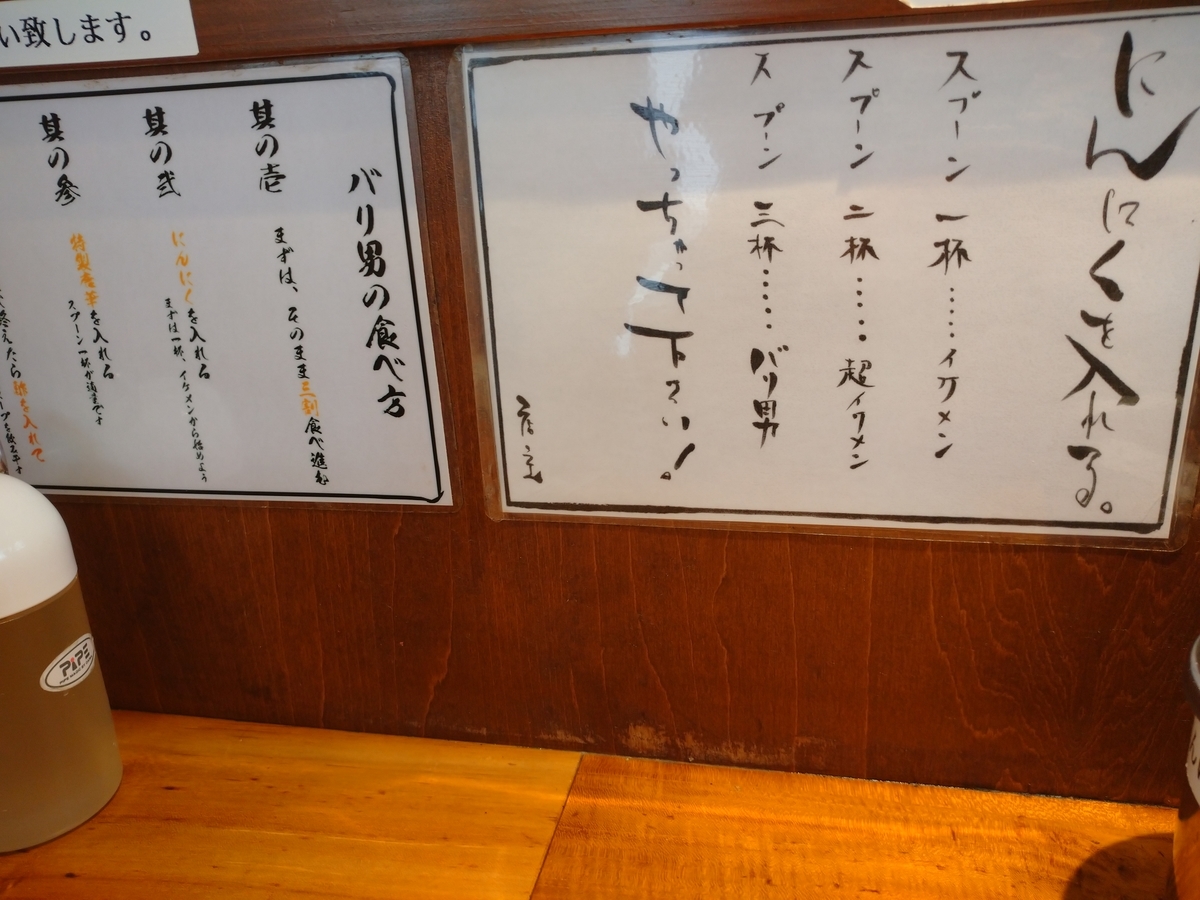 い致します。
にんにくを入れる。
スプーン一杯……イケメン
スプーン二杯……超イケメン
スプーン三杯……バリ男
やっちゃって下さい！
店主
バリ男の食べ方
其の壱 まずは、そのまま三割食べ進む
其の弐 にんにくを入れる
まずは一杯、イケメンから始めよう
其の参 特製唐華を入れる
スプーン一杯が適量です
終えたら酢を入れて
PAPE